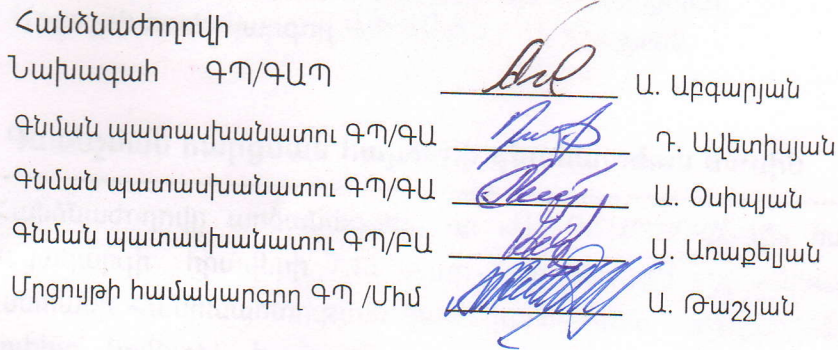 Հանձնաժողովի
Նախագահ ԳՊ/ԳԱՊ Ա. Աբգարյան
Գնման պատասխանատու ԳՊ/ԳԱ Դ. Ավետիսյան
Գնման պատասխանատու ԳՊ/ԳԱ Ա. Օսիպյան
Գնման պատասխանատու ԳՊ/ԲԱ Ս. Առաքելյան
Մրցույթի համակարգող ԳՊ /Մհմ Ա. Թաշչյան